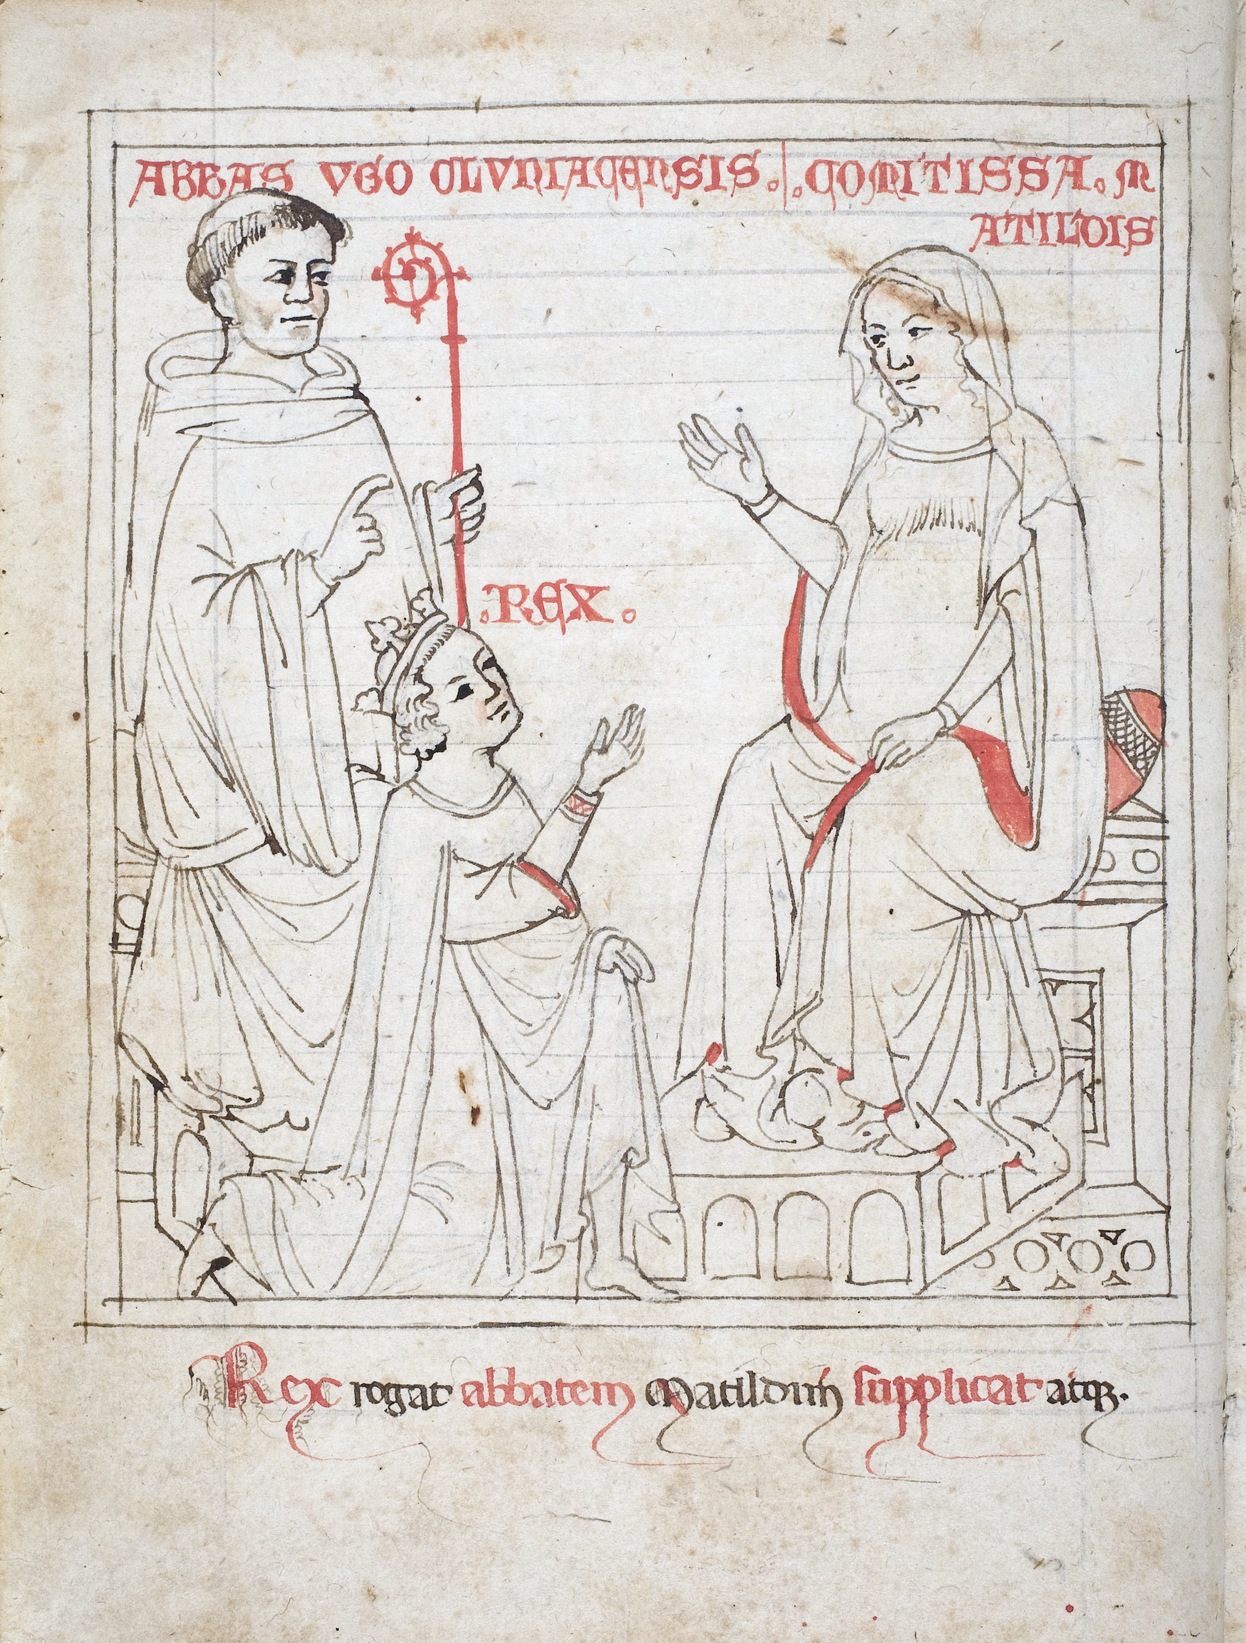 ABBAS VGO CLVNIACENSIS. .COMITISSA. M
ATILDIS
.REX.
Rex rogat abbatem Matildim supplicat atqꝫ.